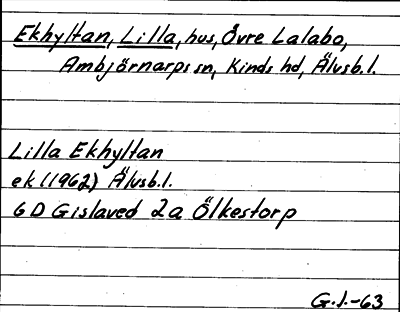 Ekhyltan, Lilla, hus, Övre Lalabo,
Ambjörnarps sn, Kinds hd, Älvsb. l.
Lilla Ekhyltan
ek (1962) Älvsb. l.
6 D Gislaved 2a Ölkestorp
G. J. -63